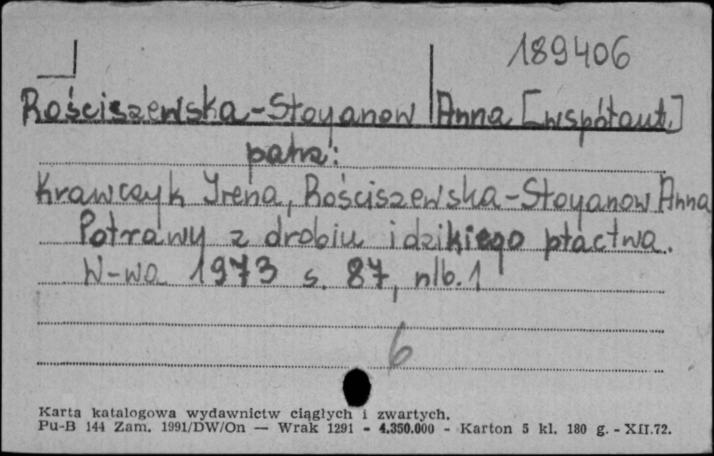 189406
Rościszewska-Stoyanow Anna [współaut.]
patrz:
Krawczyk Irena, Rościszewska-Stoyanow Anna
Potrawy z drobiu i dzikiego ptactwa.
W-wa 1973 s. 87, nlb. 1
6
Karta katalogowa wydawnictw ciągłych i zwartych.
Pu-B 144 Zam. 1991/DW/On — Wrak 1291 - 4.350.000 - Karton 5 kl. 180 g. - XII.72.